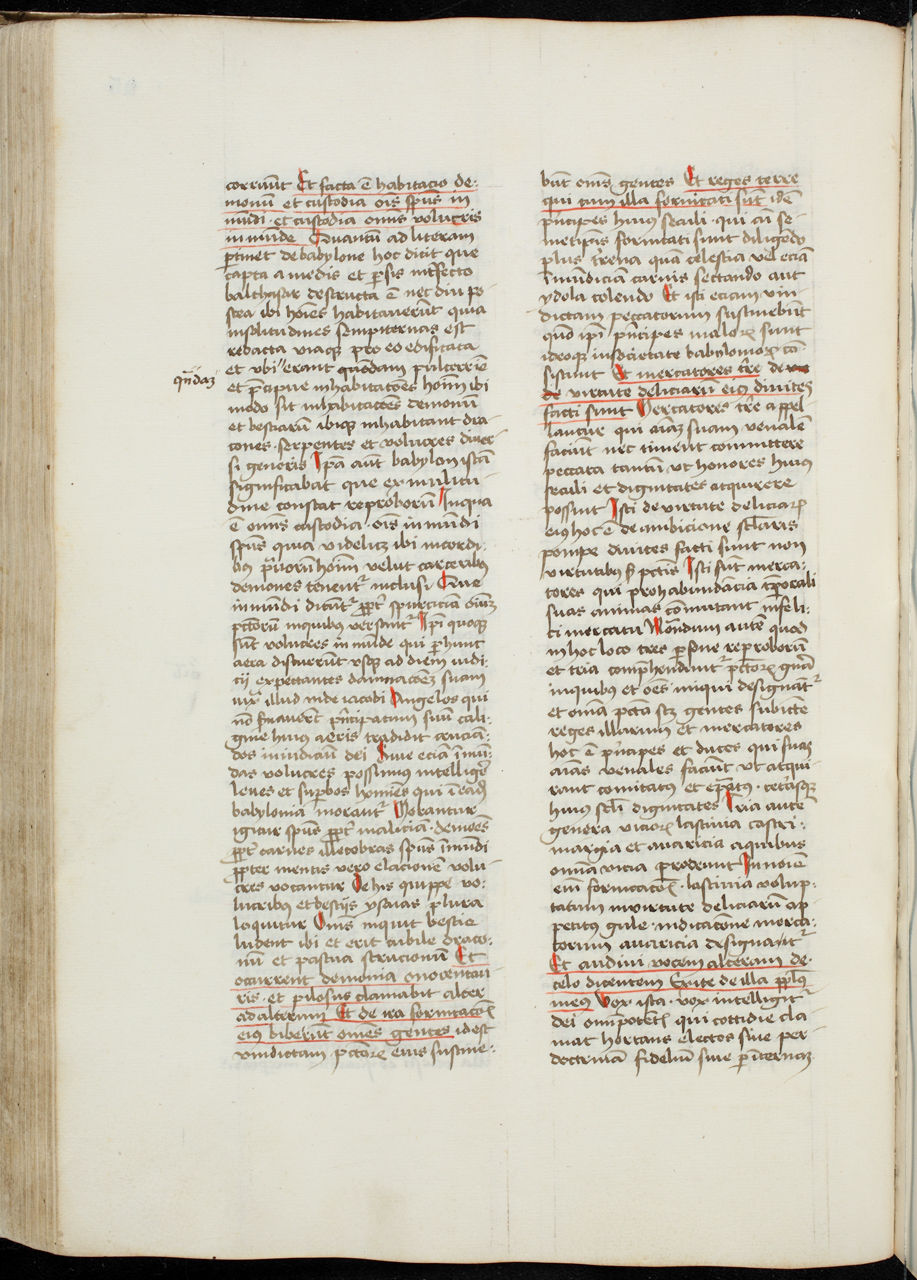 corruunt Et facta ē habitacio de:
monū et custodia oīs spūs in
mūdi et custodia omīs volucris
inmūde Quantū ad literam
ꝑtinet de babylone hoc dicit que
capta a medis et ꝑsis intfecto
balthasar destructa ē nec diu po
stea ibi hoīes habitauerūt quia
insolitudines sempiternas est
redacta vtacꝫ pro eo edificata
et vbi erant quōdam pulcerrie
qūdaꝫ
et p̄cipue inhabitatōes hoīm ibi
modo sit inhabitacōes demonū
et bestiarū ibiqꝫ inhabitant dra
cones serpentes et volucres diuer
si generis Ipā aūt babylon istā
significabat que ex multitu
dine constat reproborū Inqua
ē omīs custodia oīs inmūdi
spūs quia videlicꝫ ibi incordi:
bꝯ prauorū hoīm velut carceribꝯ
demones tenent᷑ inclusi Que
inmūdi dicūt᷑ ꝓpt̄ spurciciā oīuꝫ
pctorū inquibꝯ versant᷑ Ip̄i quoqꝫ
sūt volucres inmūde qui ꝑ hunc
aera discurrūt vsqꝫ ad diem iudi:
cij expectantes damnacōeꝫ suam
iuxᵃ illud iude iacobi Angelos qui
nō seruauerūt pncipatum suū cali:
gine huius aeris tradidit cruciā:
dos iniudiciū dei Siue eciā īmū:
das volucres possumus intelliger̄
leues et suꝑbos homīes qui ī eadē
babylonia morant᷑ Vocantur
igitur spūs ꝓpt̄ maliciā demōes
ꝓpt̄ carnis illecebras spūs īmūdi
ꝓpter mentis vero elacionē volu
cres vocantur De his quippe vo:
lucribꝯ et bestijs ysaias plura
loquitur Quīs inquit bestie
ludent ibi et erit cubile draco:
nū et pascua strucionū Et
occurrent demonia onocentau
ris et pilosus clamabit alter
ad alterum Et de ira fornicacōīs
eiꝯ biberūt omēs gentes idest
vindictam pctorꝫ eius sustine:
būt omēs gentes Et reges terre
qui cum illa fornicati sūt idē
principes huius seculi qui aī se
metipsis fornicati sunt diligēdo
plus terrena quā celestia vel eciā
īmūdiciā carnis sectando aut
ydola colendo Et isti eciam vin
dictam peccatorum sustinebūt
quō ipī prīncipes malorꝫ sunt
ideoqꝫ insocietate babylonioꝝ cō
sistunt Et mercatores tr̄e de
de virtute deliciarū eius diuites
facti sunt Mercatores tr̄e appel
lantur qui aīaꝫ suam venalē
faciūt nec timent committere
peccata tantū vt honores huiꝯ
seculi et dignitates acquirere
possint Isti de virtute deliciaꝝ
eiꝯ hoc ē de ambicione sclaris
pompe diuites facti sunt non
virtutibꝯ sꝫ pctīs Isti sūt merca:
tores qui pro habundācia tꝑorali
suas animas cōmutant infeli:
ci mercatu Notandum autē quod
in hoc loco tres ꝑsone reproborū
et tria comprehendunt᷑ pctorꝫ genera
inquibus et oēs iniqui designāt᷑
et omīa pctā scꝫ gentes subiecte
reges illarum et mercatores
hoc ē prīncipes et duces qui suas
aīas venales faciūt vt acqui
rant comitatꝯ et epatꝯ ceterasqꝫ
huiꝯ scli dignitates Tria autē
genera vicioꝝ lasciuia castri:
margia et auaricia aquibus
omīa vicia prodeunt In noīe
enī fornicacōīs lasciuia volup:
tatum invirtute deliciarū ap
petitꝯ gule indicatōne merca:
torum auaricia designant᷑
Et audiui vocem alteram de
celo dicentem Exite de illa ppls
meus Vox ista vox intelligit᷑
dei omīpotētꝭ qui cottidie cla
mat hortans electos siue per
doctrinā fidelium siue ꝑ īternaꝫ